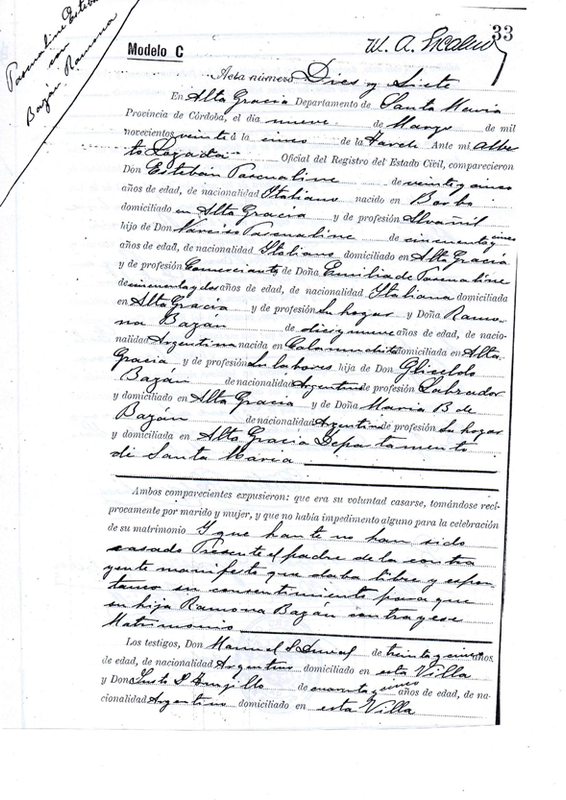 33
Modelo C
Bazán Ramona
con
Acta número Dies y Siete
En Alta Gracia Departamento de Santa Maria
Provincia de Córdoba, el día nueve de Marzo de mil
novecientos veinte á la cinco de la Tarde Ante mi Alber
to Lozada Oficial del Registro del Estado Civil, comparecieron
Don Esteban Pascualine de veinte y cinco
años de edad, de nacionalidad Italiano nacido en
domiciliado en Alta Gracia y de profesión Alvañil
hijo de Don Narciso Pascualine de cincuenta y cinco
años de edad, de nacionalidad Italiano domiciliado en Alta Gracia
y de profesión Comerciante de Doña Emilia de Pascualine
de cincuenta y dos años de edad, de nacionalidad Italiana domiciliada
en Alta Gracia y de profesión Su hogar y Doña Ramo-
na Bazán de diez y nueve años de edad, de nacio-
nalidad Argentina nacida en Calamuchita domiciliada en Alta
Gracia y de profesión Su labores hija de Don
Bazán de nacionalidad Argentino de profesión Labrador
y domiciliado en Alta Gracia y de Doña Maria B de
Bazán de nacionalidad Argentina de profesión Su hogar
y domiciliada en Alta Gracia Departamento
de Santa Maria
Ambos comparecientes expusieron: que era su voluntad casarse, tomándose recí-
procamente por marido y mujer, y que no había impedimento alguno para la celebración
de su matrimonio Y que hante no han sido
casado Presente el padre de la contra
yente manifesto que daba libre y espon-
taneo su consentimiento para que
su hija Ramona Bazán contragese
Matrimonio
Los testigos, Don Manuel S de treinta y cinco años
de edad, de nacionalidad Argentino domiciliado en esta Villa
y Don Justo P de cuarenta y cinco años de edad, de na-
cionalidad Argentino domiciliado en esta Villa